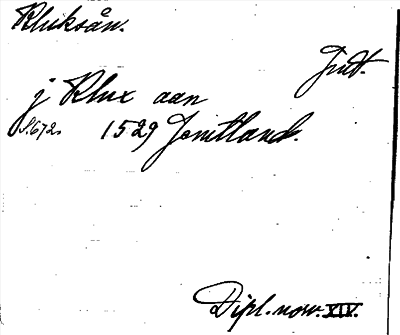 Kluksån.
Jmt.
j Klux aan
S.672. 1529 Jemtland.
Dipl. norv. XIV.